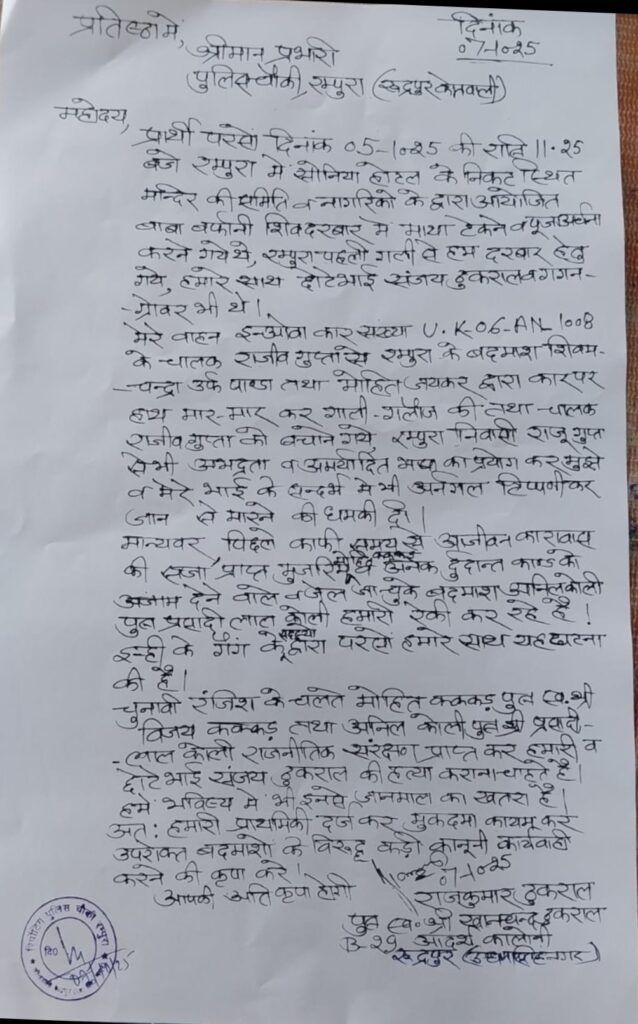 प्रतिष्ठा में,
दिनांक
07-10-25
श्रीमान प्रभारी
पुलिस चौकी, रम्पुरा (रूद्रपुर कोतवाली)
महोदय,
प्रार्थी परसो दिनांक 05-10-25 की रात्रि 11.25
बजे रम्पुरा में सोनिया होटल के निकट स्थित
मन्दिर की समिति व नागरिको के द्वारा आयोजित
बाबा बर्फानी शिव दरबार में माथा टेकने व पूजा अर्चना
करने गये थे, रम्पुरा पहली गली से हम दरबार हेतु
गये, हमारे साथ छोटे भाई संजय ठुकराल व गगन-
-ग्रोवर भी थे।
मेरे वाहन इनोवा कार संख्या U.K-06-AN-1008
के चालक राजीव गुप्ता से रम्पुरा के बदमाश शिवम-
-चन्द्रा उर्फ पाण्डा तथा मोहित जयकर द्वारा कार पर
हाथ मार-मार कर गाली-गलौज की तथा चालक
राजीव गुप्ता को बचाने गये रम्पुरा निवासी राजू गुप्ता
से भी अभद्रता व अमर्यादित भाषा का प्रयोग कर मुझे
व मेरे भाई के सन्दर्भ में भी अनर्गल टिप्पणी कर
जान से मारने की धमकी दी।
मान्यवर पिछले काफी समय से आजीवन कारावास
की सजा प्राप्त मुजरिम मोहित कक्कड़ व अनेक दुर्दान्त काण्ड को
अंजाम देने वाले व जेल जा चुके बदमाश अनिल कोली
पुत्र प्रसादी लाल कोली हमारी रेकी कर रहे है।
इन्ही के गैंग के सदस्यो द्वारा परसो हमारे साथ यह घटना
की है।
चुनावी रंजिश के चलते मोहित कक्कड़ पुत्र स्व. श्री
विजय कक्कड़ तथा अनिल कोली पुत्र श्री प्रसादी-
-लाल कोली राजनीतिक संरक्षण प्राप्त कर हमारी व
छोटे भाई संजय ठुकराल की हत्या कराना चाहते है।
हमे भविष्य में भी इनसे जानमाल का खतरा है।
अत: हमारी प्राथमिकी दर्ज कर मुकदमा कायम कर
उपरोक्त बदमाशो के विरुद्ध कड़ी कानूनी कार्यवाही
करने की कृपा करे।
आपकी अति कृपा होगी
07-10-25
राजकुमार ठुकराल
पुत्र स्व. श्री खानचन्द ठुकराल
B-29 आदर्श कालोनी
रूद्रपुर (उधमसिंहनगर)
रिपोर्टिंग पुलिस चौकी रम्पुरा
दि0